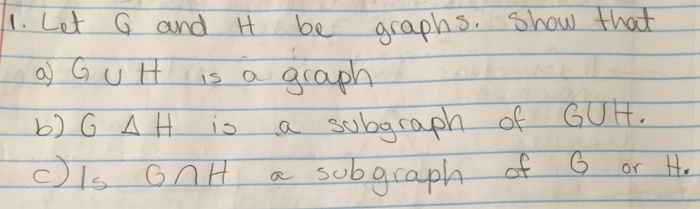 1. Let G and H be graphs. Show that
a) G ∪ H is a graph
b) G Δ H is a subgraph of G∪H.
c) Is G∩H a subgraph of G or H.